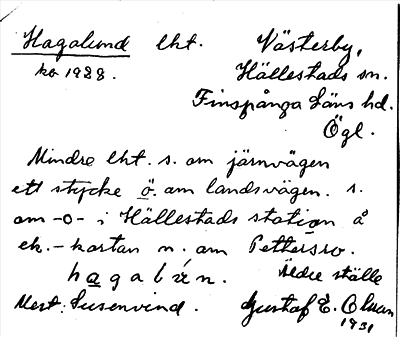 Hagalund lht. Västerby,
ko 1928. Hällestads sn.
Finspånga Läns hd.
Ögl.
Mindre lht. s. om järnvägen
ett stycke ö. om landsvägen. s.
om -o- i Hällestads station å
ek.-kartan n. om Pettersro.
hagalún. Äldre ställe
Med: Susenvind. Gustaf E. Olsson
1931